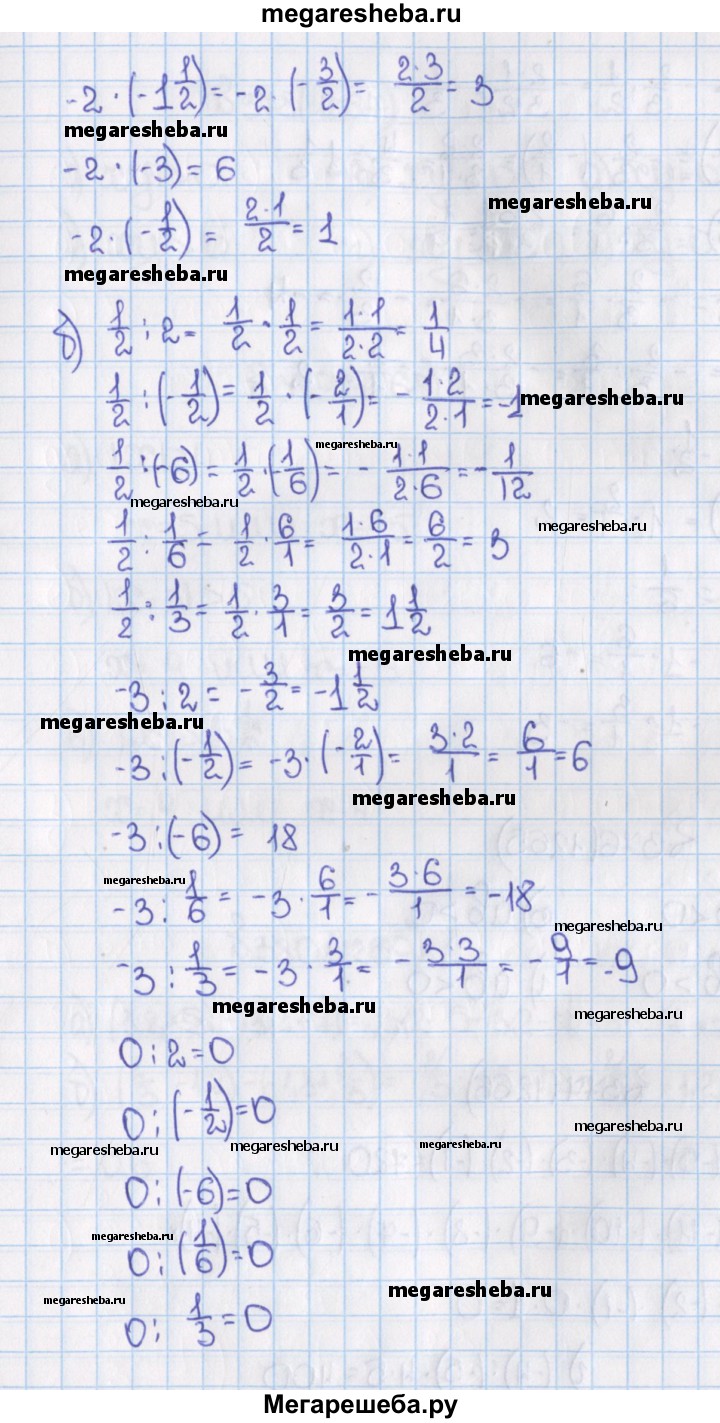 megaresheba.ru
-2 · (-1 1/2) = -2 · (-3/2) = 2·3/2 = 3
megaresheba.ru
-2 · (-3) = 6
megaresheba.ru
-2 · (-1/2) = 2·1/2 = 1
megaresheba.ru
б) 1/2 : 2 = 1/2 · 1/2 = 1·1/2·2 = 1/4
1/2 : (-1/2) = 1/2 · (-2/1) = - 1·2/2·1 = -1
megaresheba.ru
megaresheba.ru
1/2 : (-6) = 1/2 · (-1/6) = - 1·1/2·6 = - 1/12
megaresheba.ru
megaresheba.ru
1/2 : 1/6 = 1/2 · 6/1 = 1·6/2·1 = 6/2 = 3
1/2 : 1/3 = 1/2 · 3/1 = 3/2 = 1 1/2
megaresheba.ru
-3 : 2 = - 3/2 = -1 1/2
megaresheba.ru
-3 : (-1/2) = -3 · (-2/1) = 3·2/1 = 6/1 = 6
megaresheba.ru
-3 : (-6) = 18
megaresheba.ru
-3 : 1/6 = -3 · 6/1 = - 3·6/1 = -18
megaresheba.ru
-3 : 1/3 = -3 · 3/1 = - 3·3/1 = - 9/1 = -9
megaresheba.ru
megaresheba.ru
0 : 2 = 0
0 : (-1/2) = 0
megaresheba.ru
megaresheba.ru
megaresheba.ru
megaresheba.ru
0 : (-6) = 0
megaresheba.ru
0 : (1/6) = 0
megaresheba.ru
megaresheba.ru
0 : 1/3 = 0
Мегарешеба.ру